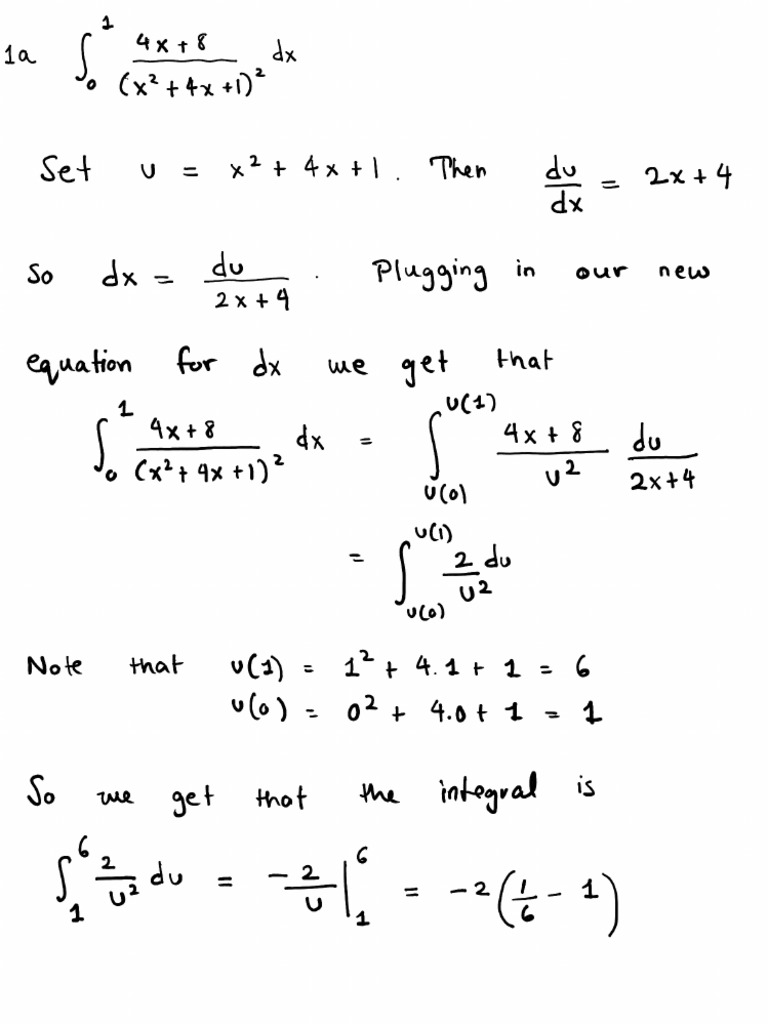 1a ∫₀¹ (4x+8)/(x²+4x+1)² dx
Set u = x² + 4x + 1. Then du/dx = 2x + 4
So dx = du/(2x+4). Plugging in our new
equation for dx we get that
∫₀¹ (4x+8)/(x²+4x+1)² dx = ∫_{u(0)}^{u(1)} (4x+8)/u² du/(2x+4)
= ∫_{u(0)}^{u(1)} 2/u² du
Note that u(1) = 1² + 4.1 + 1 = 6
u(0) = 0² + 4.0 + 1 = 1
So we get that the integral is
∫₁⁶ 2/u² du = -2/u |₁⁶ = -2(1/6 - 1)